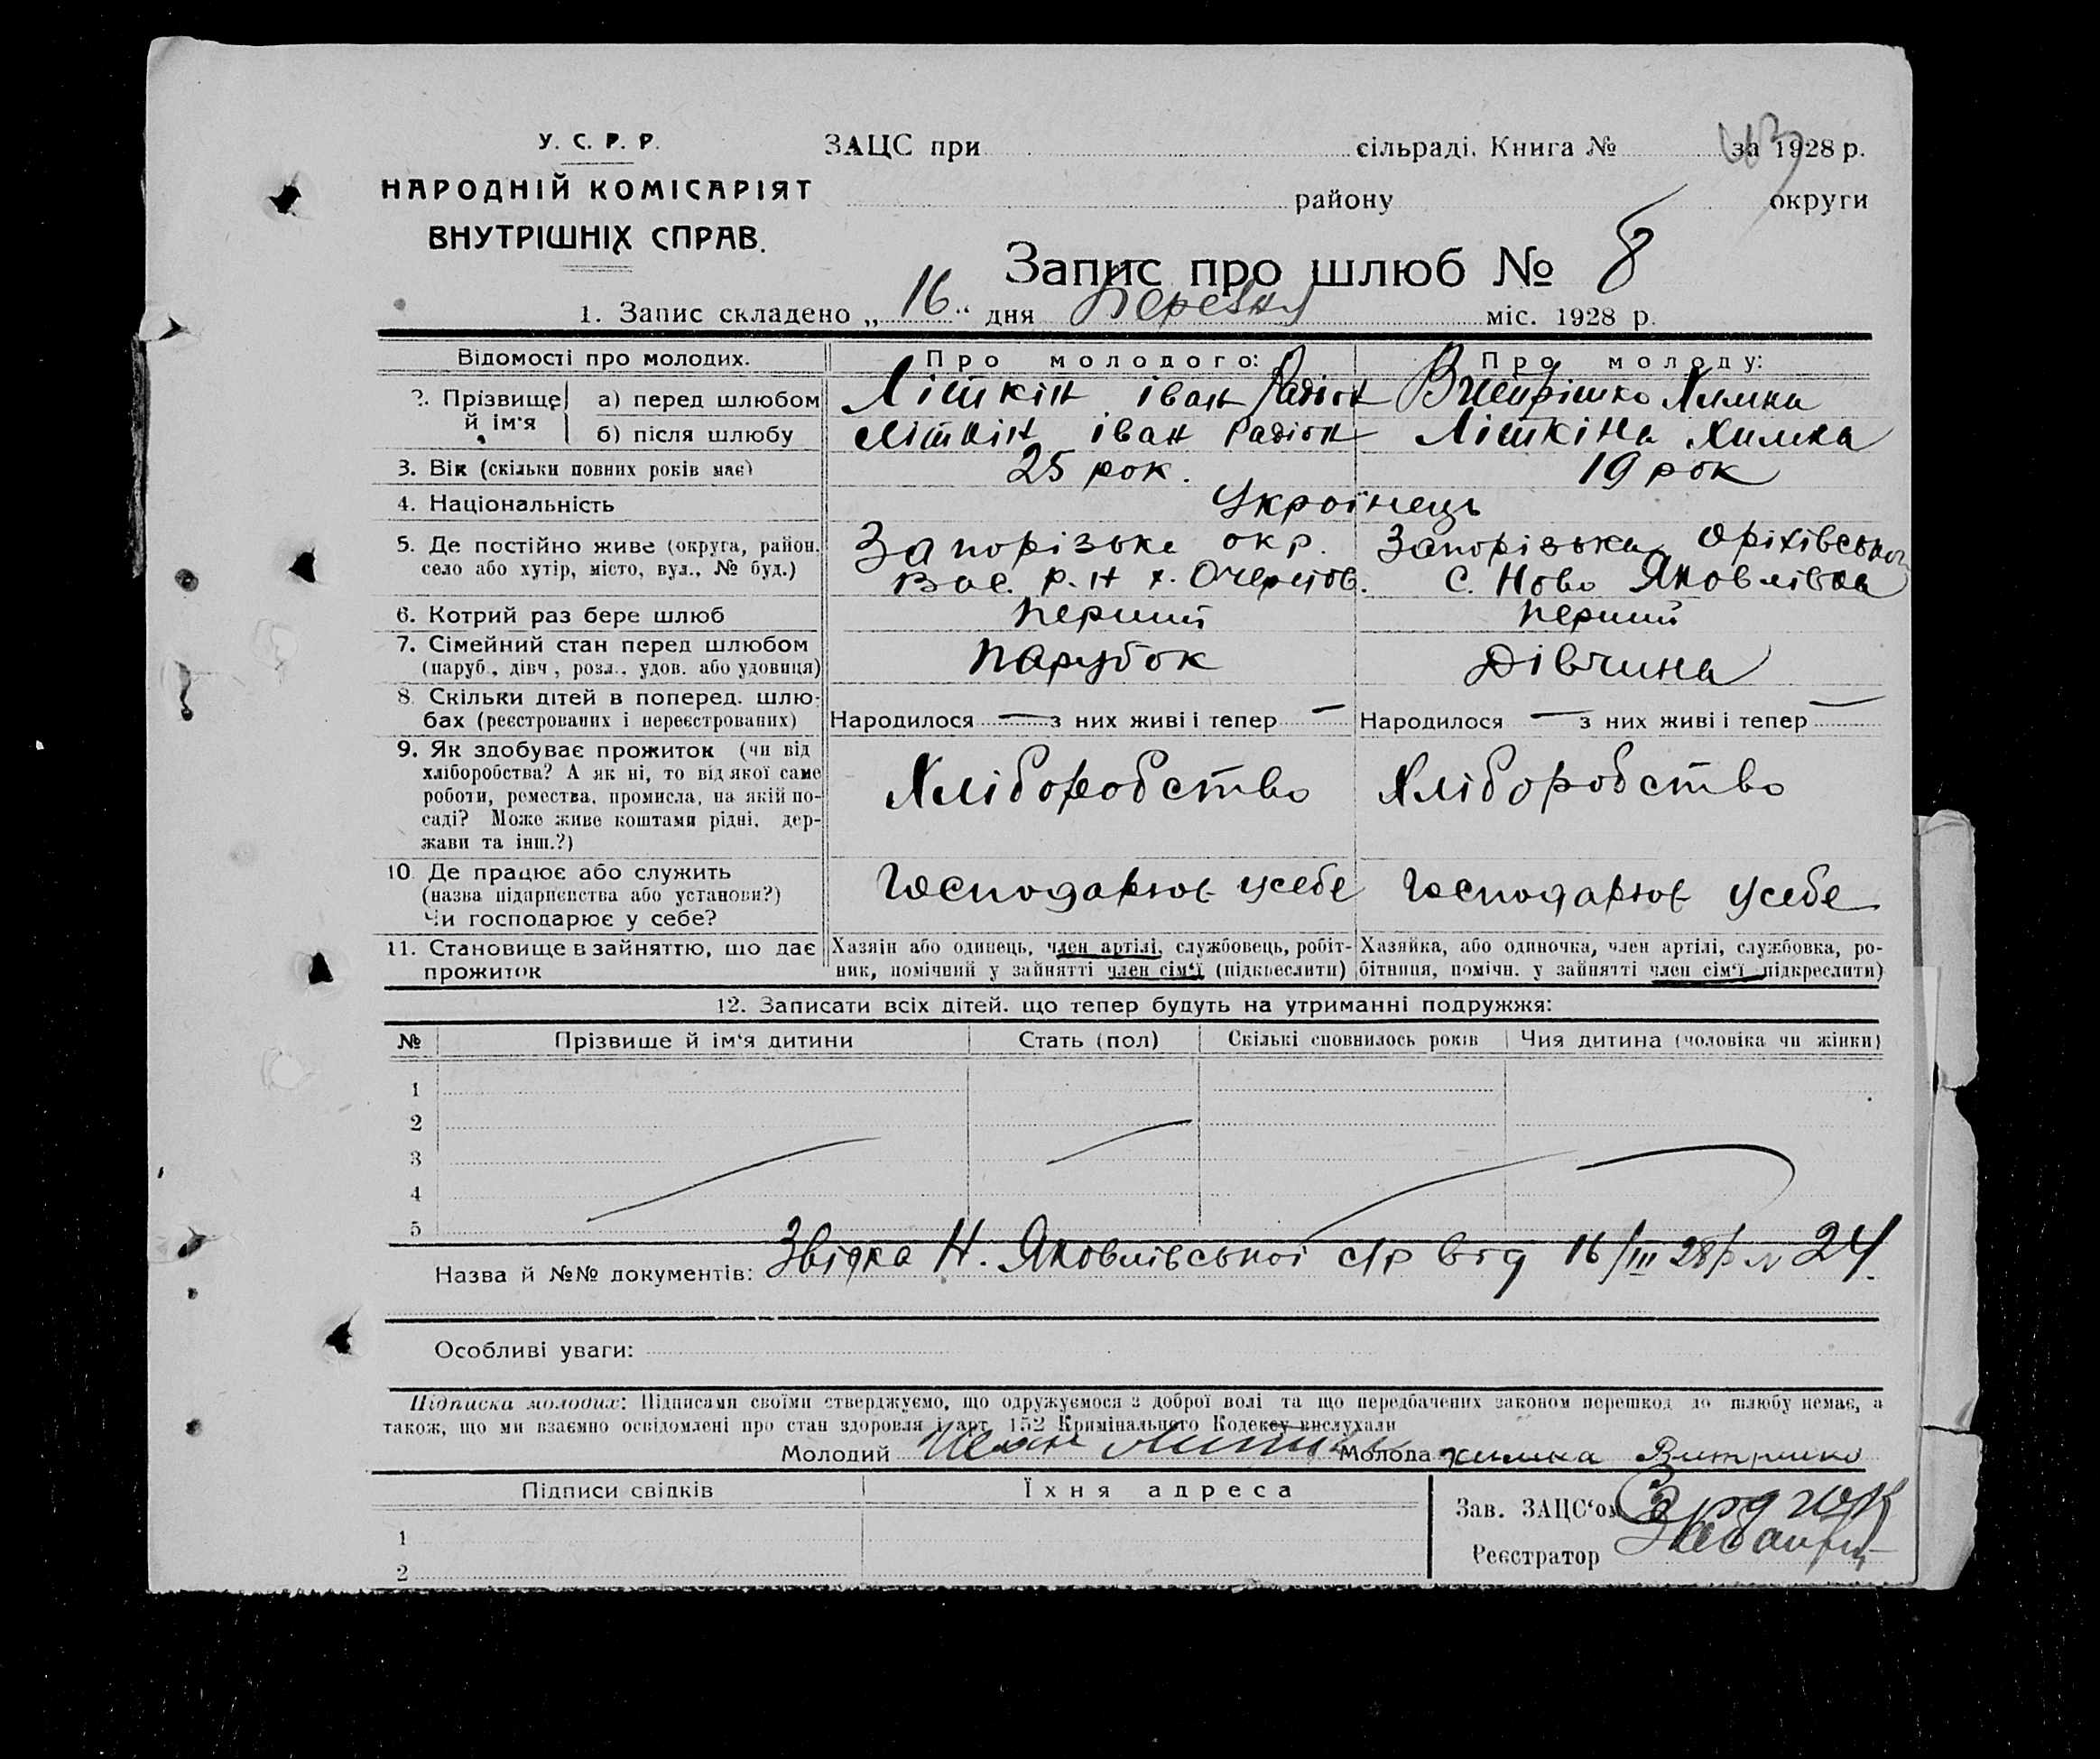 У. С. Р. Р.
НАРОДНІЙ КОМІСАРІЯТ
ВНУТРІШНІХ СПРАВ.
ЗАЦС при сільраді. Книга № за 1928 р.
району округи
Запис про шлюб № 8
1. Запис складено „ 16 “ дня Березня міс. 1928 р.
Відомості про молодих. Про молодого: Про молоду:
2. Прізвище й ім‘я а) перед шлюбом Літкін іван Радіон Химка
б) після шлюбу Літкін іван Радіон Літкіна Химка
3. Вік (скільки повних років має) 25 рок. 19 рок
4. Національність Українець
5. Де постійно живе (округа, район, село або хутір, місто, вул., № буд.) Запорізька окр. Запорізька Оріхівської
Вас. р. н х. Очеретов. с. Ново Яковлівка
6. Котрий раз бере шлюб перший перший
7. Сімейний стан перед шлюбом (паруб., дівч., розл., удов. або удовиця) парубок Дівчина
8. Скільки дітей в поперед. шлюбах (реєстрованих і нереєстрованих) Народилося — з них живі і тепер — Народилося — з них живі і тепер —
9. Як здобуває прожиток (чи від хліборобства? А як ні, то від якої саме роботи, ремества, промисла, на якій посаді? Може живе коштами рідні, держави та інш.?) Хліборобство Хліборобство
10. Де працює або служить (назва підприємства або установи?) Чи господарює у себе? Господарює усебе Господарює усебе
11. Становище в зайняттю, що дає прожиток Хазяїн або одинець, член артілі, службовець, робітник, помічний у зайнятті член сім‘ї (підкреслити) Хазяйка, або одиночка, член артілі, службовка, робітниця, помічн. у зайнятті член сім‘ї підкреслити)
12. Записати всіх дітей. що тепер будуть на утриманні подружжя:
№ Прізвище й ім‘я дитини Стать (пол) Скількі сповнилось років Чия дитина (чоловіка чи жінки)
1
2
3
4
5
Назва й №№ документів: Звідка Н. Яковлівської с/р від 16/III 28 р № 24.
Особливі уваги:
Підписка молодих: Підписами своїми стверджуємо, що одружуємося з доброї волі та що передбачених законом перешкод до шлюбу немає, а
також, що ми взаємно освідомлені про стан здоровля і арт. 152 Кримінального Кодексу вислухали
Молодий Иван Молода химка
Підписи свідків Їхня адреса
1
2
Зав. ЗАЦС‘ом
Реєстратор